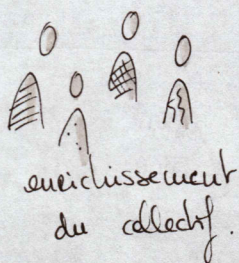 enrichissement
du collectif.